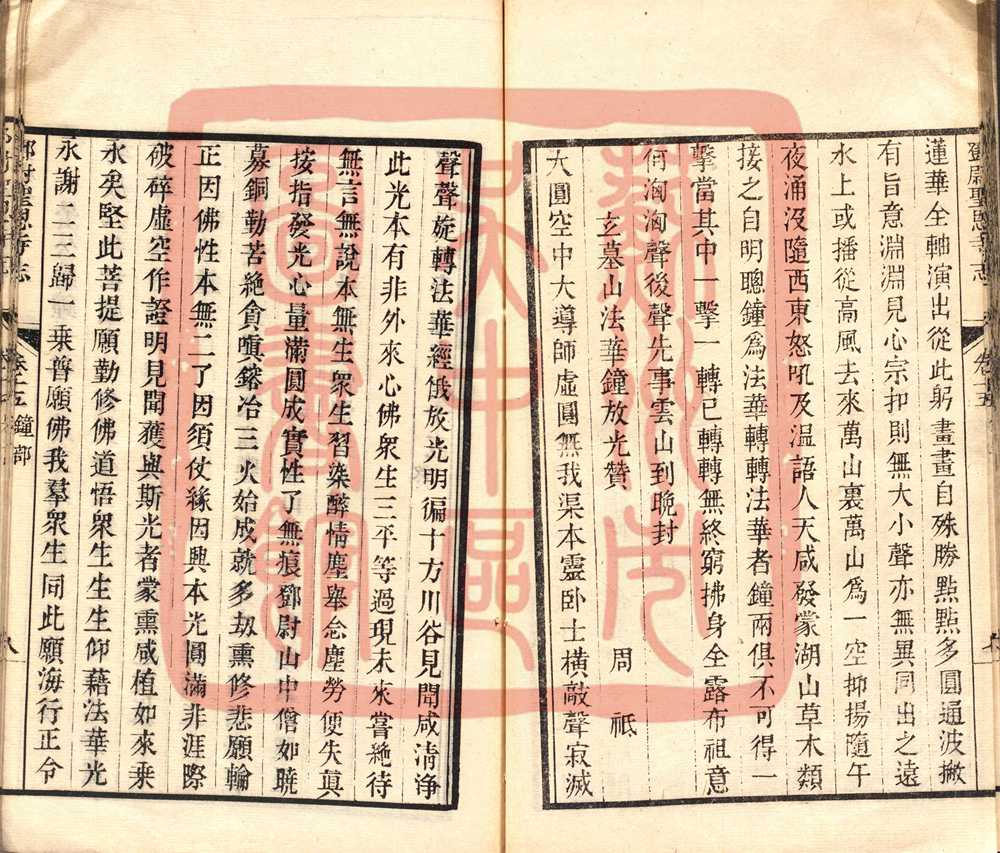 鄧尉聖恩寺志
卷十五
蓮華全軸演出從此躬畫畫自殊勝點點多圓通波撇
有旨意淵淵見心宗扣則無大小聲亦無異同出之遠
水上或播從高風去來萬山裏萬山爲一空抑揚隨午
夜涌沒隨西東怒吼及温語人天咸發蒙湖山草木類
接之自明聰鐘爲法華轉轉法華者鐘兩俱不可得一
擊當其中一擊一轉已轉轉無終窮拂身全露布祖意
何洶洶聲後聲先事雲山到晚封
玄墓山法華鐘放光贊
周祗
大圓空中大導師虛圓無我渠本靈卧士橫敲聲寂滅
聲聲旋轉法華經俄放光明徧十方川谷見聞咸清淨
此光本有非外來心佛衆生三平等過現未來嘗絶待
無言無說本無生衆生習染醉情塵舉念塵勞便失眞
按指發光心量滿圓成實性了無痕鄧尉山中僧如曉
募銅勤苦絶貪嗔鎔冶三火始成就多劫熏修悲願輪
正因佛性本無二了因須仗緣因興本光圓滿非涯際
破碎虛空作證明見聞獲與斯光者蒙熏咸值如來乗
永矣堅此菩提願勤修佛道悟衆生生生仰藉法華光
永謝二三歸一乗普願佛我羣衆生同此願海行正令
聖恩寺志
卷十五鐘部
八